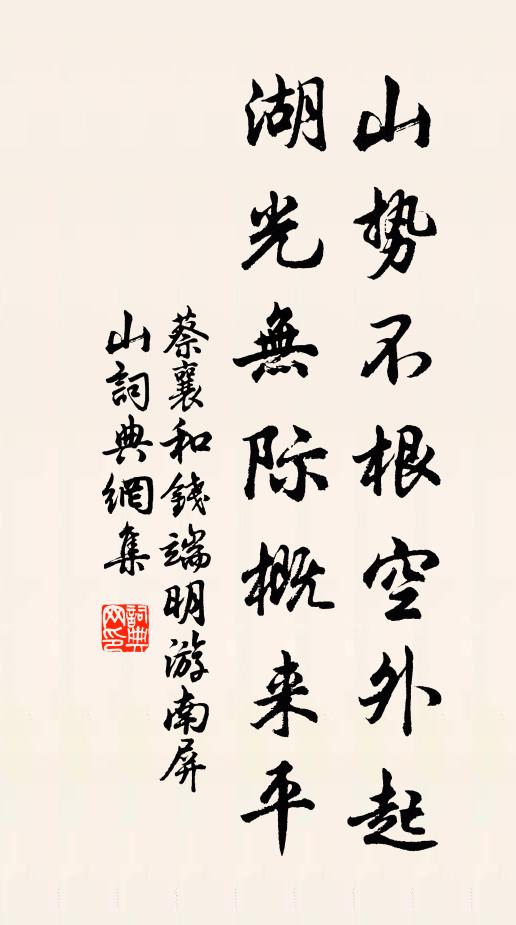 山势不根空外起
湖光無际概来平
蔡襄和錢端明游南屏
山詞典網集
詞典
网印